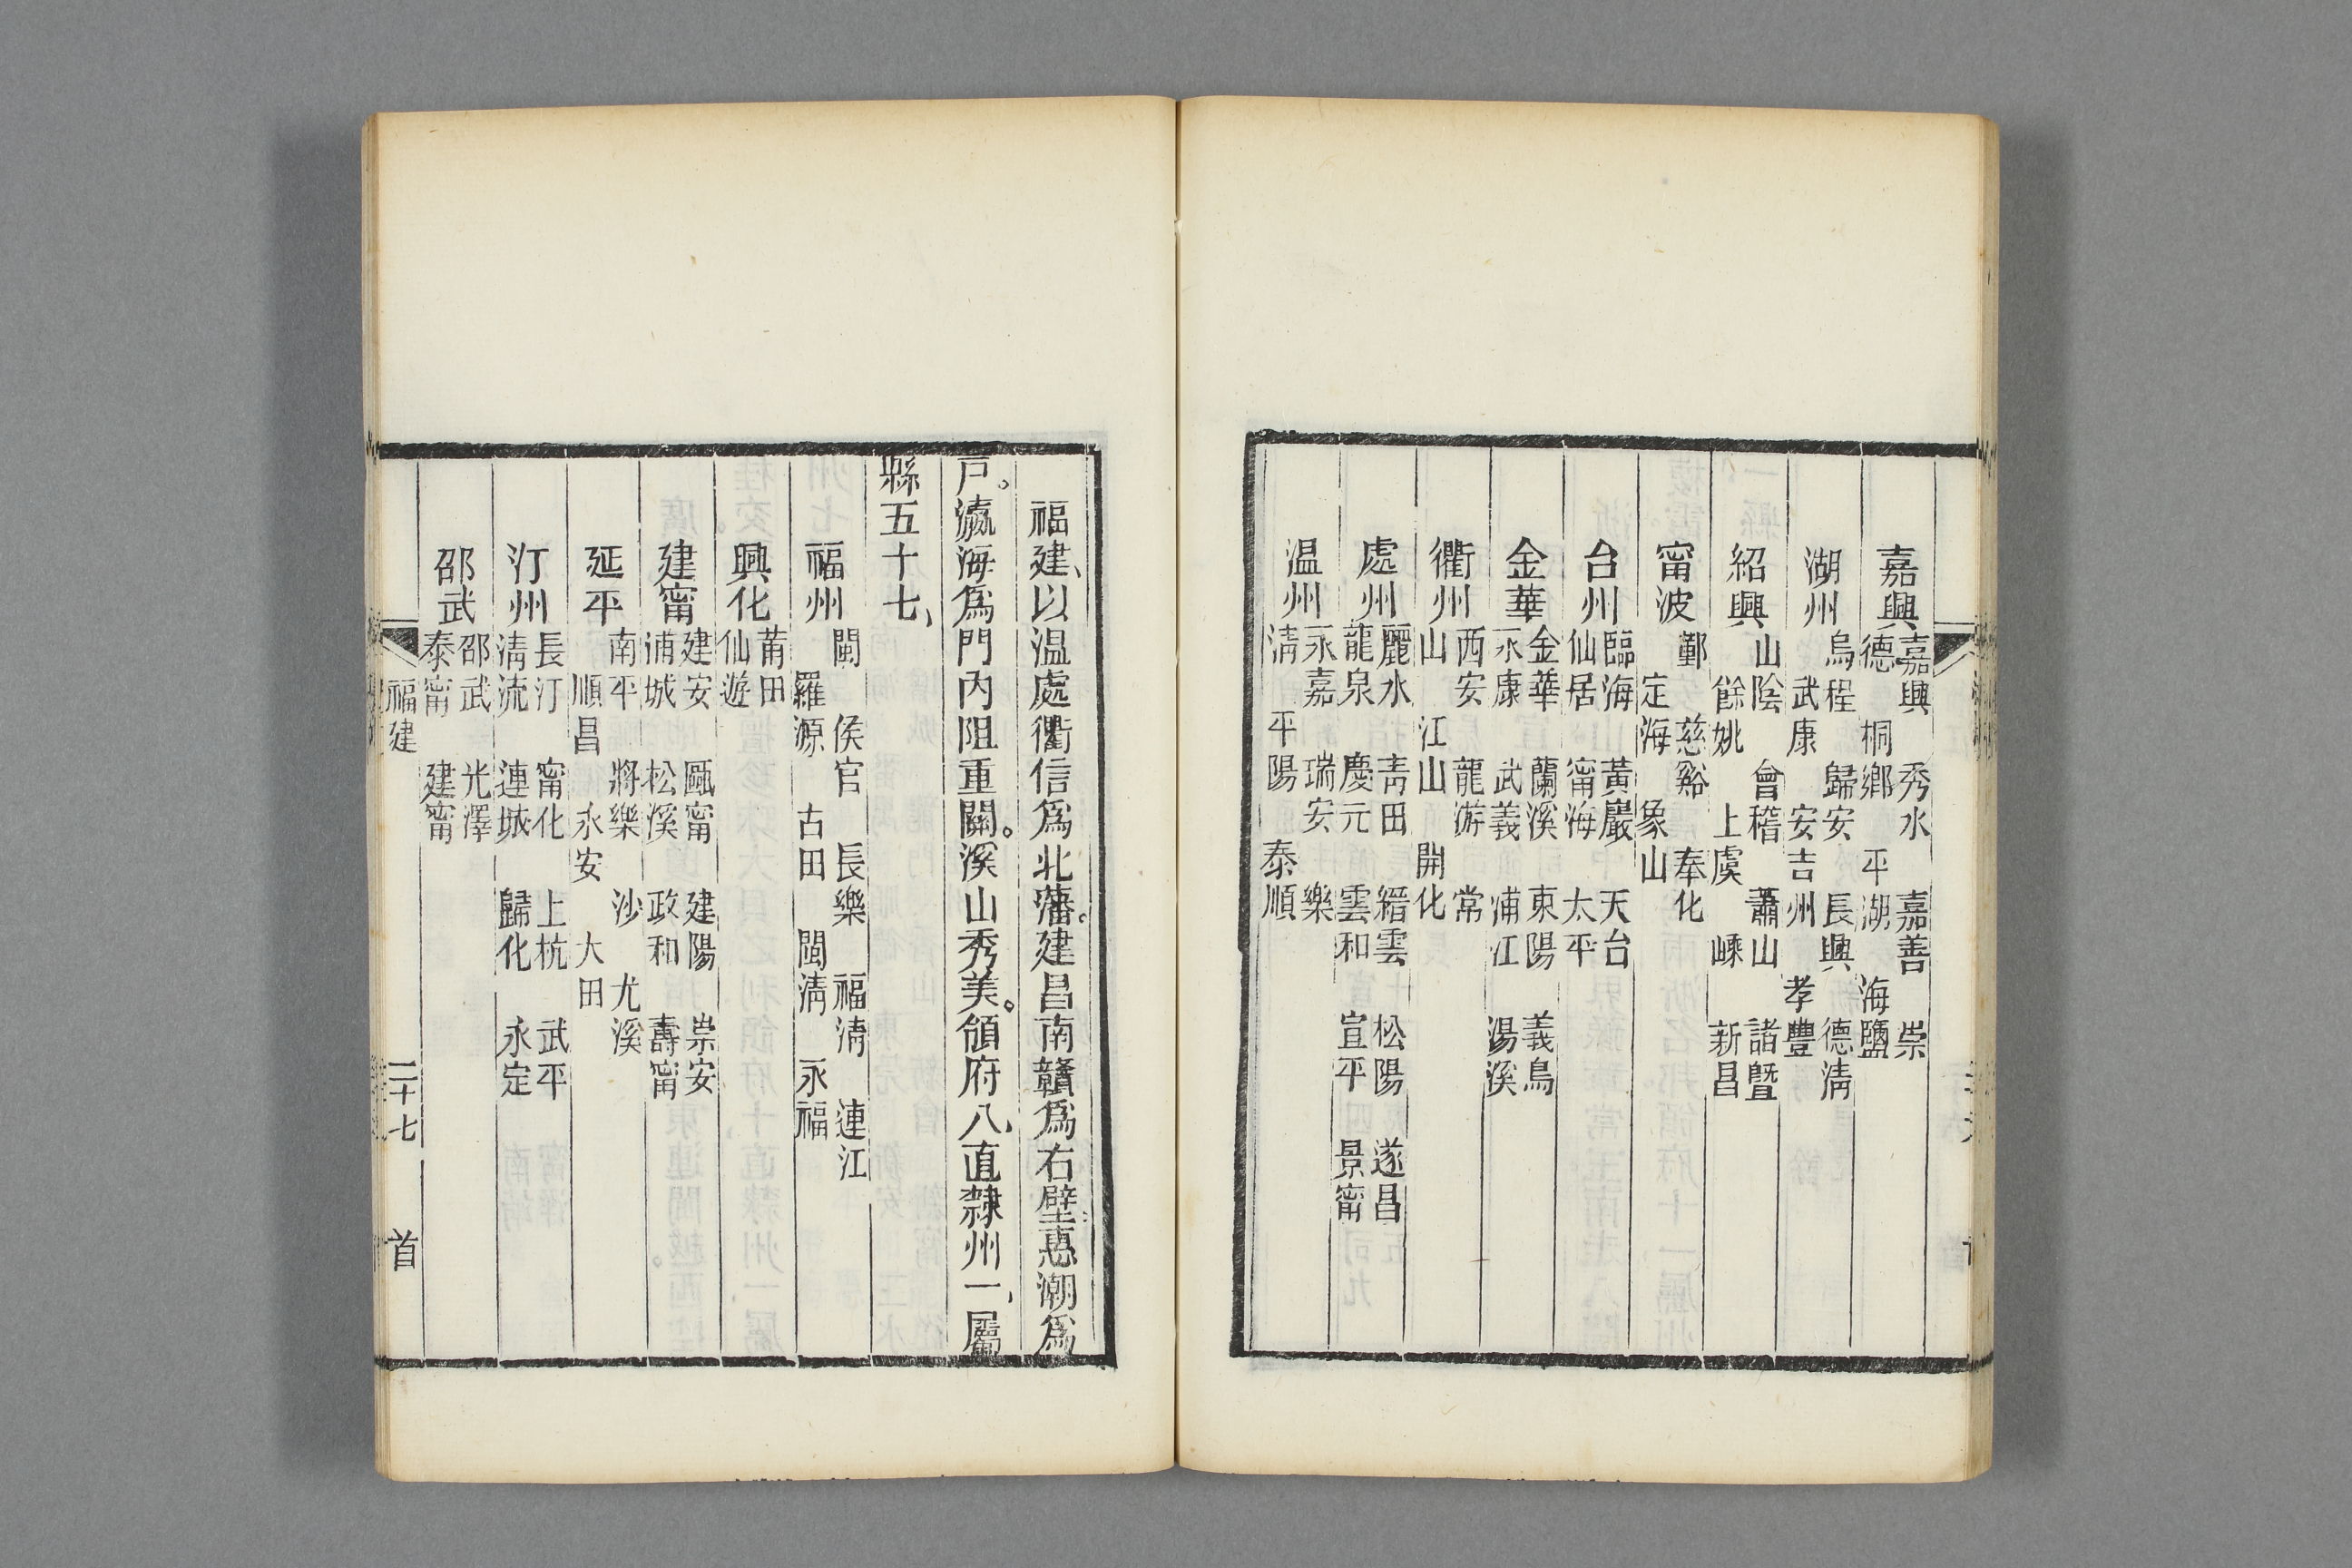 嘉興 嘉興 秀水 嘉善 崇
德 桐鄉 平湖 海鹽
湖州 烏程 歸安 長興 德淸
武康 安吉州 孝豐
紹興 山陰 會稽 蕭山 諸曁
餘姚 上虞 嵊 新昌
甯波 鄞 慈谿 奉化
定海 象山
台州 臨海 黃巖 天台
仙居 甯海 太平
金華 金華 蘭溪 東陽 義烏
永康 武義 浦江 湯溪
衢州 西安 龍游 常
山 江山 開化
處州 麗水 靑田 縉雲 松陽 遂昌
龍泉 慶元 雲和 宣平 景甯
温州 永嘉 瑞安 樂
淸 平陽 泰順
福建、以温處衢信爲北藩。建昌南贛爲右壁、惠潮爲
戸。瀛海爲門、内阻重關。溪山秀美。領府八、直隸州一、屬
縣五十七、
福州 閩 侯官 長樂 福淸 連江
羅源 古田 閩淸 永福
興化 莆田
仙遊
建甯 建安 甌甯 建陽 崇安
浦城 松溪 政和 壽甯
延平 南平 將樂 沙 尤溪
順昌 永安 大田
汀州 長汀 甯化 上杭 武平
淸流 連城 歸化 永定
邵武 邵武 光澤
泰甯 建甯
福建 二十七 首